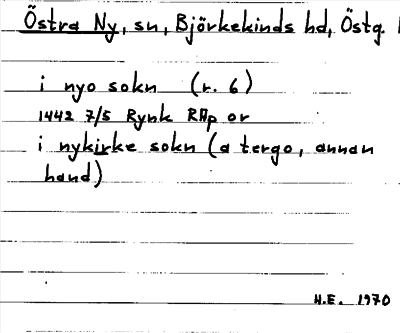 Östra Ny, sn, Björkekinds hd, Östg.
i nyo sokn (r. 6)
1442 7/5 Rynk RAp or
i nykirke sokn (a tergo, annan
hand)
H.E. 1970